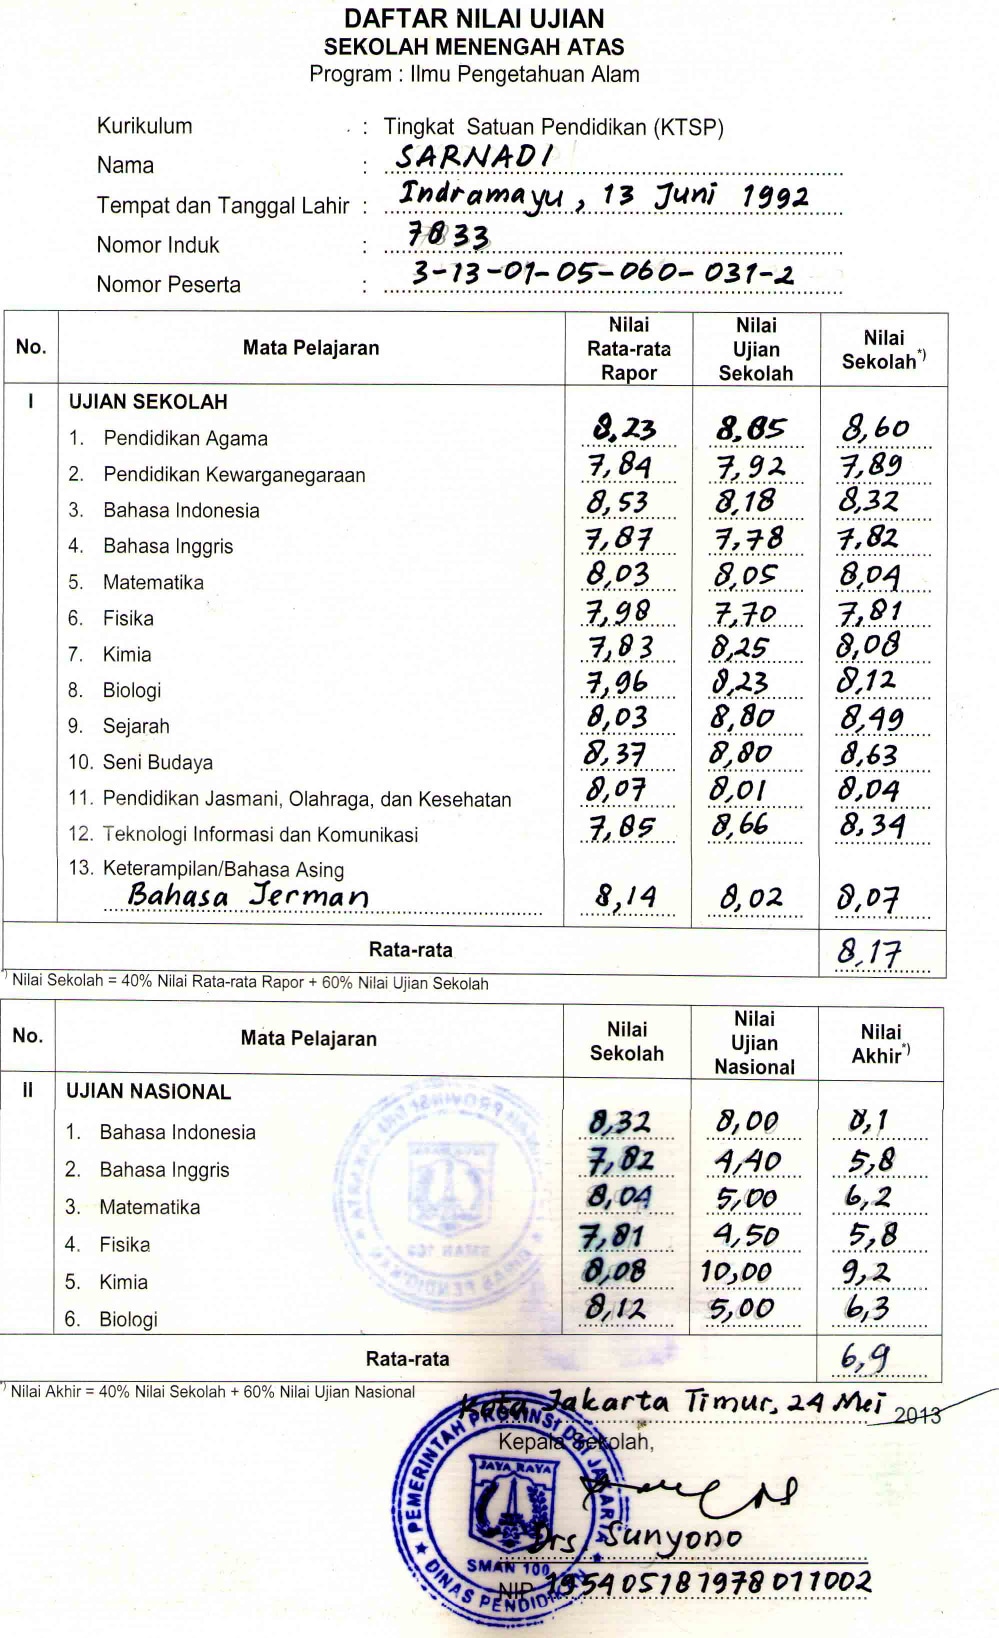 DAFTAR NILAI UJIAN
SEKOLAH MENENGAH ATAS
Program : Ilmu Pengetahuan Alam
Kurikulum : Tingkat Satuan Pendidikan (KTSP)
Nama : SARNADI
Tempat dan Tanggal Lahir : Indramayu, 13 Juni 1992
Nomor Induk : 7833
Nomor Peserta : 3-13-01-05-060-031-2
No. Mata Pelajaran Nilai Rata-rata Rapor Nilai Ujian Sekolah Nilai Sekolah*)
I UJIAN SEKOLAH
1. Pendidikan Agama 8,23 8,85 8,60
2. Pendidikan Kewarganegaraan 7,84 7,92 7,89
3. Bahasa Indonesia 8,53 8,18 8,32
4. Bahasa Inggris 7,87 7,78 7,82
5. Matematika 8,03 8,05 8,04
6. Fisika 7,98 7,70 7,81
7. Kimia 7,83 8,25 8,08
8. Biologi 7,96 8,23 8,12
9. Sejarah 8,03 8,80 8,49
10. Seni Budaya 8,37 8,80 8,63
11. Pendidikan Jasmani, Olahraga, dan Kesehatan 8,07 8,01 8,04
12. Teknologi Informasi dan Komunikasi 7,85 8,66 8,34
13. Keterampilan/Bahasa Asing
Bahasa Jerman 8,14 8,02 8,07
Rata-rata 8,17
*) Nilai Sekolah = 40% Nilai Rata-rata Rapor + 60% Nilai Ujian Sekolah
No. Mata Pelajaran Nilai Sekolah Nilai Ujian Nasional Nilai Akhir*)
II UJIAN NASIONAL
1. Bahasa Indonesia 8,32 8,00 8,1
2. Bahasa Inggris 7,82 4,40 5,8
3. Matematika 8,04 5,00 6,2
4. Fisika 7,81 4,50 5,8
5. Kimia 8,08 10,00 9,2
6. Biologi 8,12 5,00 6,3
Rata-rata 6,9
*) Nilai Akhir = 40% Nilai Sekolah + 60% Nilai Ujian Nasional
Kota Jakarta Timur, 24 Mei 2013
Kepala Sekolah,
PEMERINTAH PROVINSI DKI JAKARTA
JAYA RAYA
SMAN 100
DINAS PENDIDIKAN
Drs. Sunyono
NIP 195405181978011002